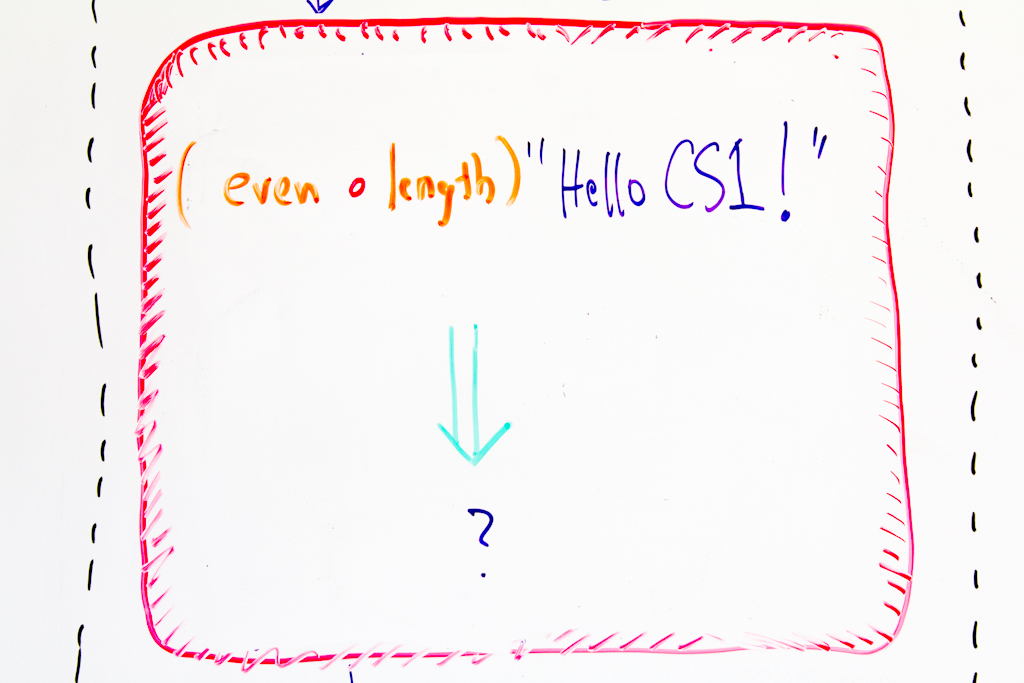 (even ∘ length) "Hello CS1!"
?